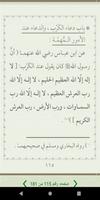 * باب دعاء الكَرْب ، والدعاء عند
الأمور المُهِمَّة
عن ابن عباس رضي الله عنهما : أن
رسول الله ﷺ كان يقول عند الكرب :
« لا إله إلا الله العظيم الحليم ، لا إله إلا الله
رب العرش العظيم ، لا إله إلا الله رب
السماوات ، ورب الأرض ، رب العرش
الكريم » [١] .
(١) رواه البخاري ومسلم في صحيحيهما .
١١٥
صفحة رقم 115 من 181